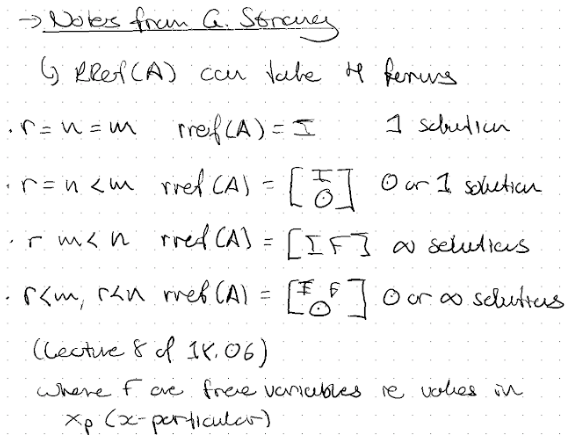 → Notes from G. Strang
↳ RRef(A) can take 4 forms
• r = n = m rref(A) = I 1 solution
• r = n < m rref(A) = [I 0] 0 or 1 solution
• r m < n rref(A) = [I F] ∞ solutions
• r < m, r < n rref(A) = [I F 0] 0 or ∞ solutions
(Lecture 8 of 18.06)
where F are free variables ie values in
xp (x-particular)